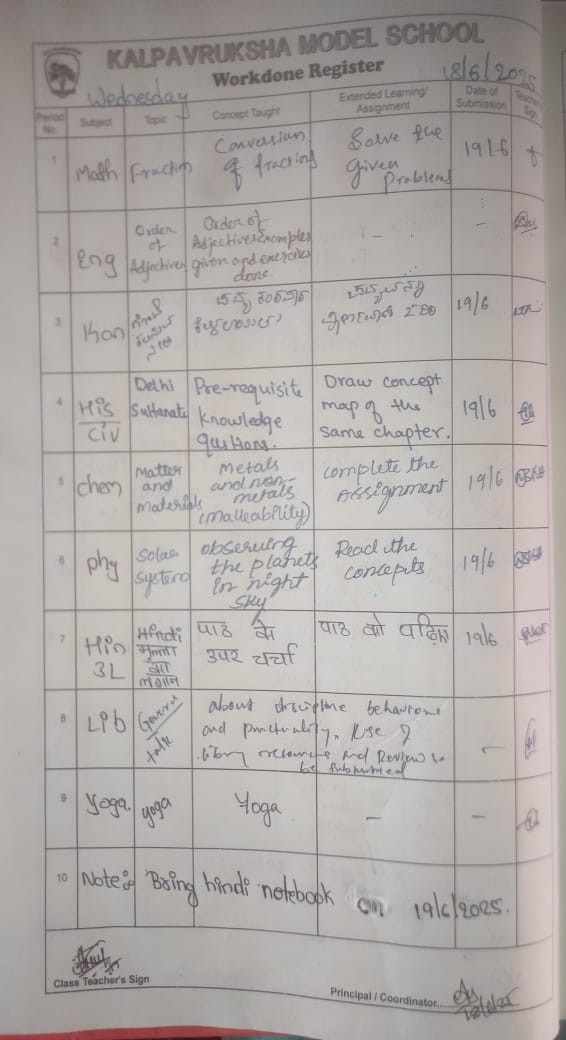 KALPAVRUKSHA MODEL SCHOOL
Workdone Register
Wednesday
18/6/2025
Period No.
Subject
Topic
Concept Taught
Extended Learning/ Assignment
Date of Submission
Teacher's Sign
1
Math
Fraction
Conversion
of fractions
Solve the
given
Problems
19/6
2
Eng
Order
of
Adjectives
Order of
Adjectives Examples
given and exercises
done.
-
-
3
Kan
19/6
4
His
Civ
Delhi
Sultanate
Pre-requisite
knowledge
qustions.
Draw concept
map of the
same chapter.
19/6
5
chem
Matter
and
materials
Metals
and non-
metals
(malleability)
complete the
Assignment
19/6
6
phy
Solar
System
observing
the planets
in night
sky
Read the
concepts
19/6
7
Hin
3L
Hindi
पाठ के
उपर चर्चा
पाठ को पढ़िए
19/6
8
Lib
talk
about discipline behaviour
and punctuality. Use of
library resources and Review to
be submitted
-
9
Yoga.
yoga
Yoga
-
-
10
Note: Bring hindi notebook on 19/6/2025.
Class Teacher's Sign
Principal / Coordinator